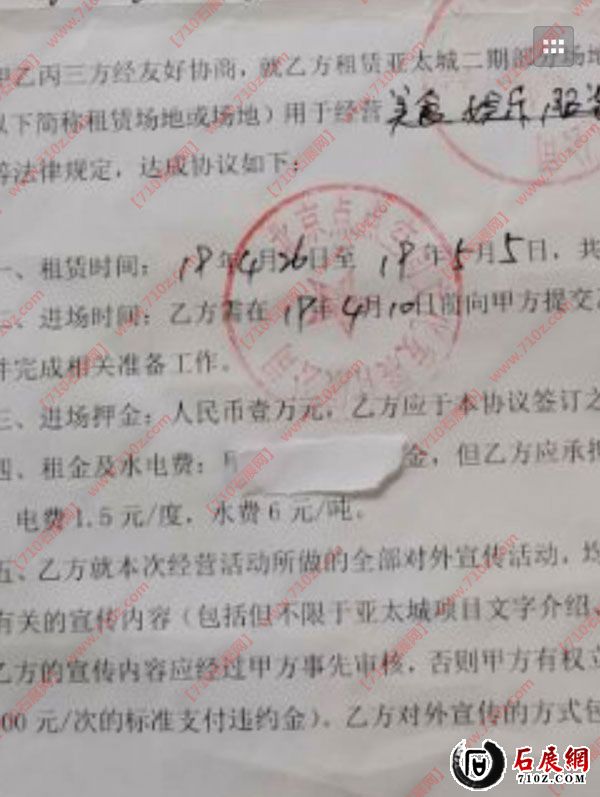 甲乙丙三方经友好协商，就乙方租赁亚太城二期部分场地
以下简称租赁场地或场地）用于经营美食 娱乐
等法律规定，达成协议如下：
一、租赁时间：18年4月26日至 18年5月5日，共
二、进场时间：乙方需在18年4月10日前向甲方提交
并完成相关准备工作。
三、进场押金：人民币壹万元，乙方应于本协议签订之
四、租金及水电费： 金，但乙方应承担
电费1.5元/度，水费6元/吨。
五、乙方就本次经营活动所做的全部对外宣传活动，均
有关的宣传内容（包括但不限于亚太城项目文字介绍、
乙方的宣传内容应经过甲方事先审核，否则甲方有权立
00元/次的标准支付违约金）。乙方对外宣传的方式包
北京点点空间
【710石展网】
www.710z.com
石展網
710Z.COM